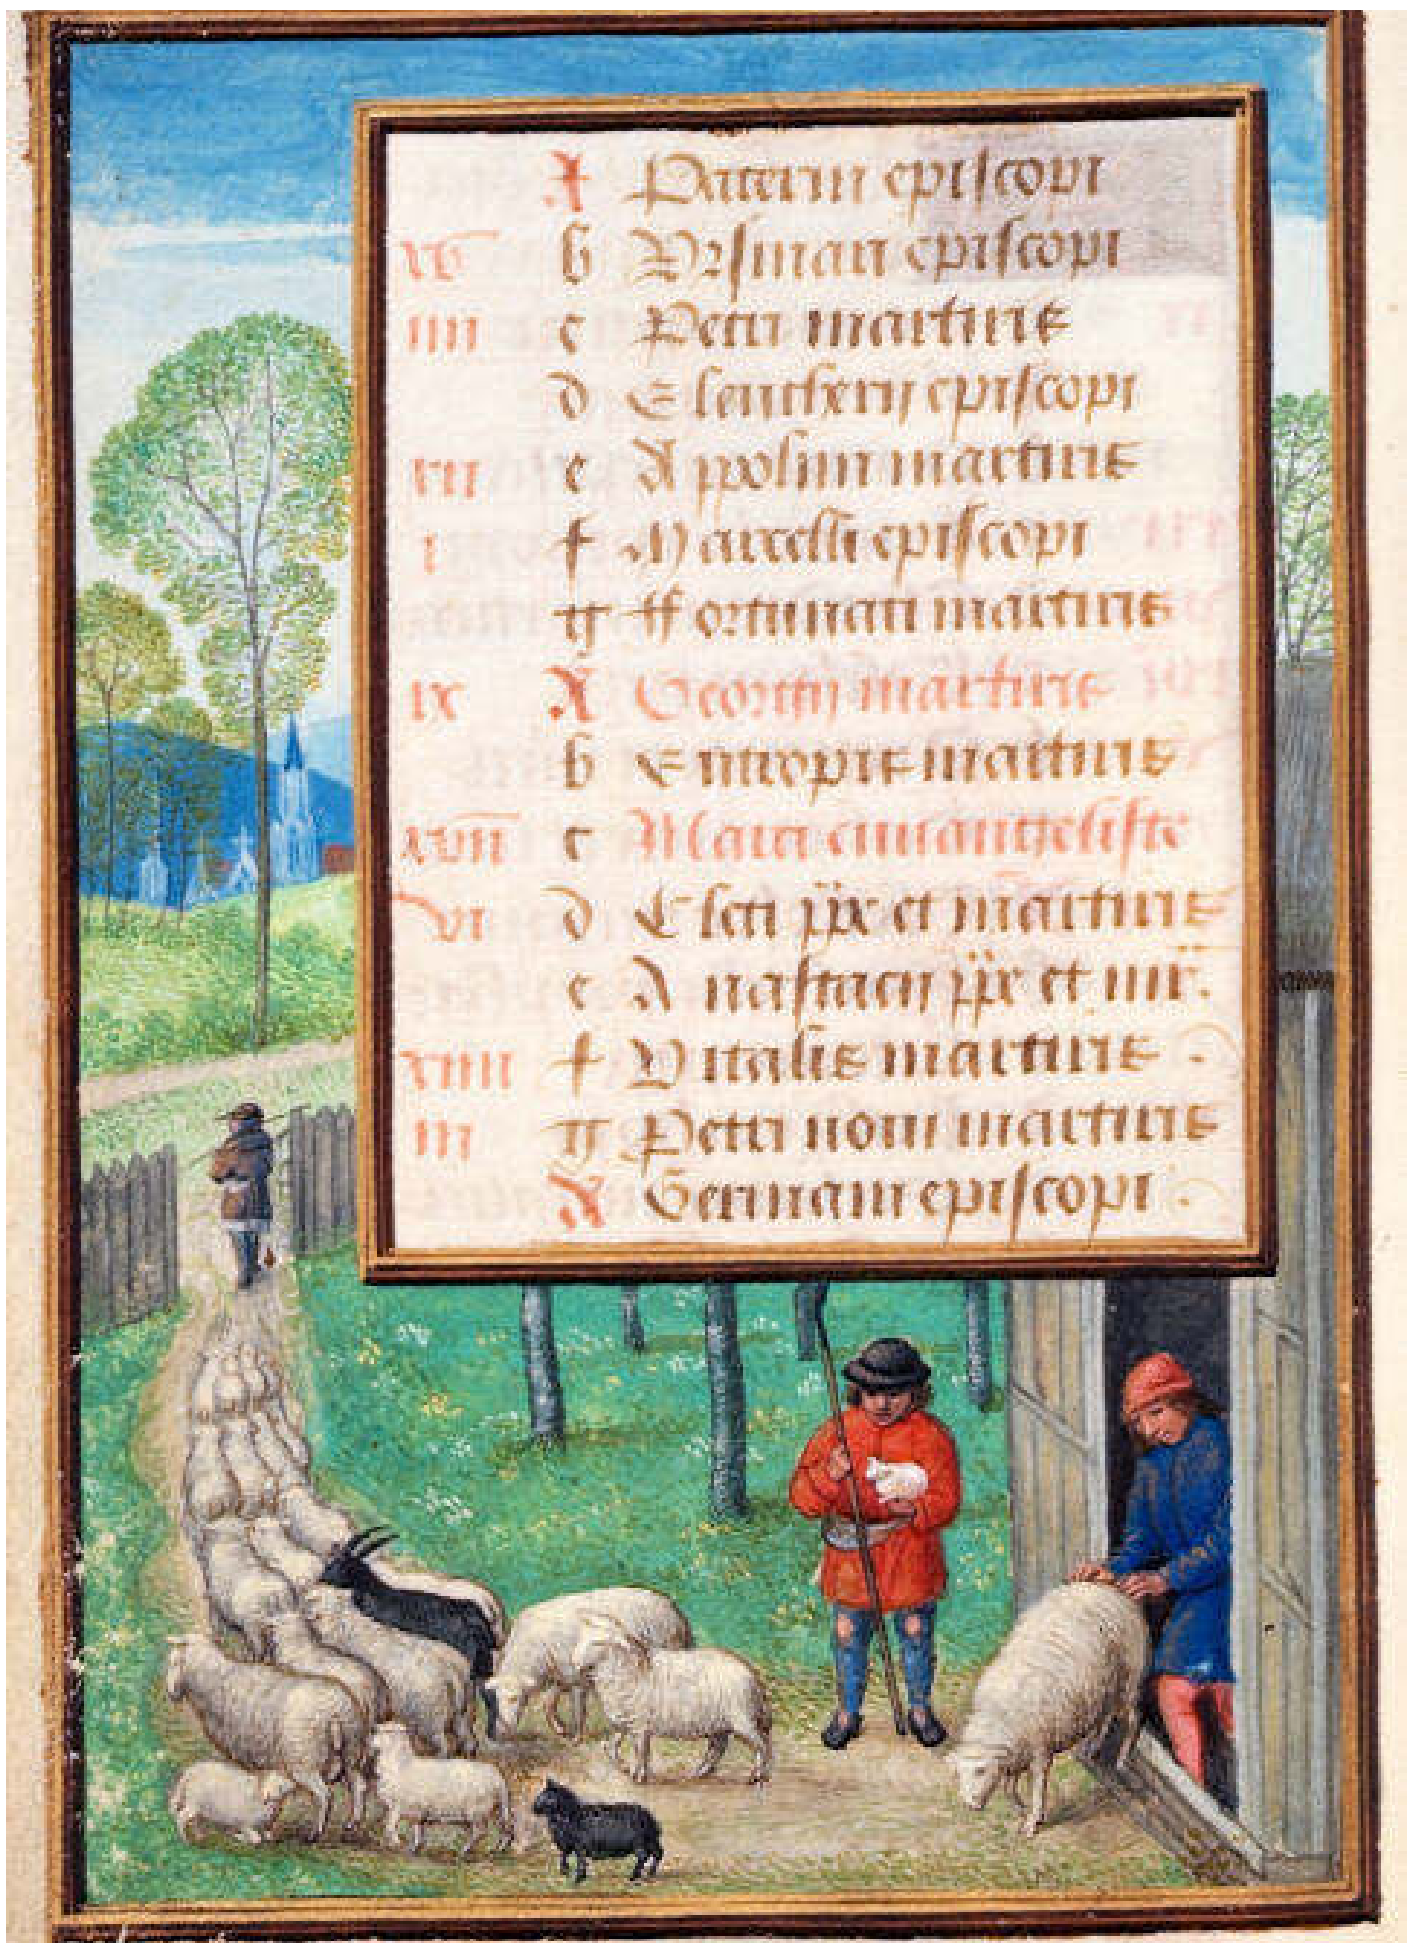 A Paterni episcopi
xv b Vrsmari episcopi
iiii c Petri martiris
d Eleutherij episcopi
xii e Appolini martiris
i f Marcelli episcopi
g ffortunati martiris
ix A Georgij martiris
b Eutropis martiris
xvii c Marci euuangeliste
vi d Cleti ppx et martiris
e Anastacij ppx et mr.
xiiii f Vitalis martiris .
iii g Petri noui martiris
A Germani episcopi .